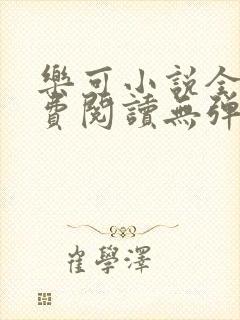 樂可小說全
費閱讀無彈
崔學澤